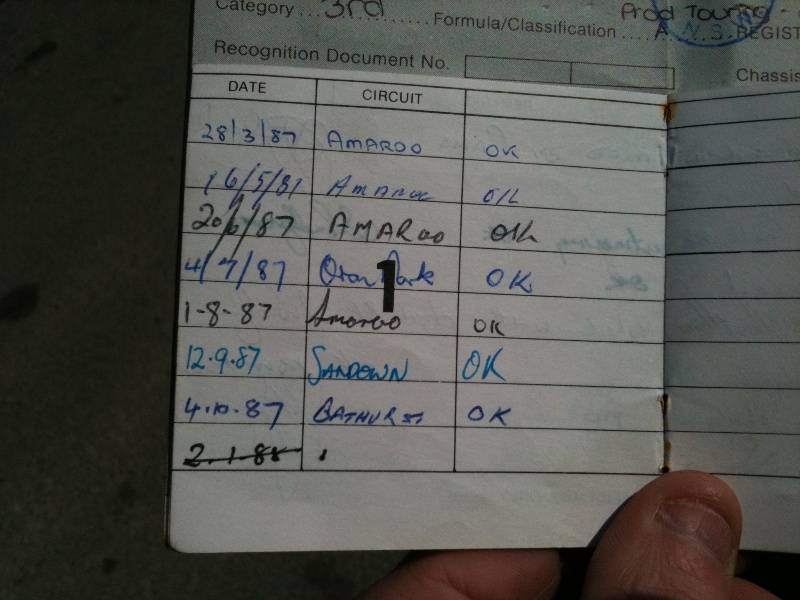 Category ... 3rd ........ Formula/Classification .... A Prod Touring -
N.S. REGIST
Recognition Document No.
Chassis
DATE CIRCUIT
28/3/87 AMAROO OK
16/5/87 AMAROO OK
20/6/87 AMAROO OK
4/7/87 Oran Park OK
1
1-8-87 Amaroo OK
12.9.87 SANDOWN OK
4.10.87 BATHURST OK
2.1.88